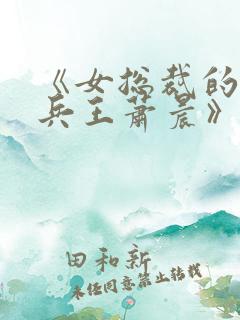 《女总裁的
兵王萧晨》
田和新
未经同意禁止转载